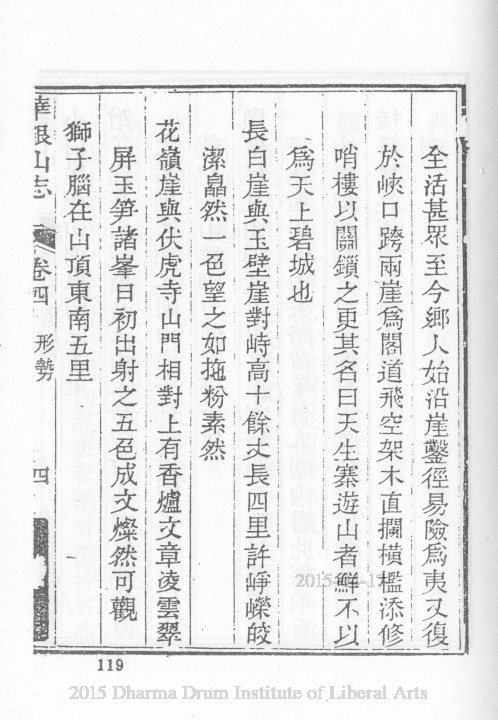 全活甚眾至今鄉人始沿崖鑿徑易險爲夷又復
於峽口跨兩崖爲閣道飛空架木直攔橫檻添修
哨樓以關鎖之更其名曰天生寨遊山者鮮不以
爲天上碧城也
長白崖與玉壁崖對峙高十餘丈長四里許崢嶸皎
潔皛然一色望之如拖粉素然
花嶺崖與伏虎寺山門相對上有香爐文章凌雲翠
屏玉笋諸峯日初出射之五色成文燦然可觀
獅子腦在山頂東南五里
華銀山志 卷四 形勢 四
119
2015 Dharma Drum Institute of Liberal Arts